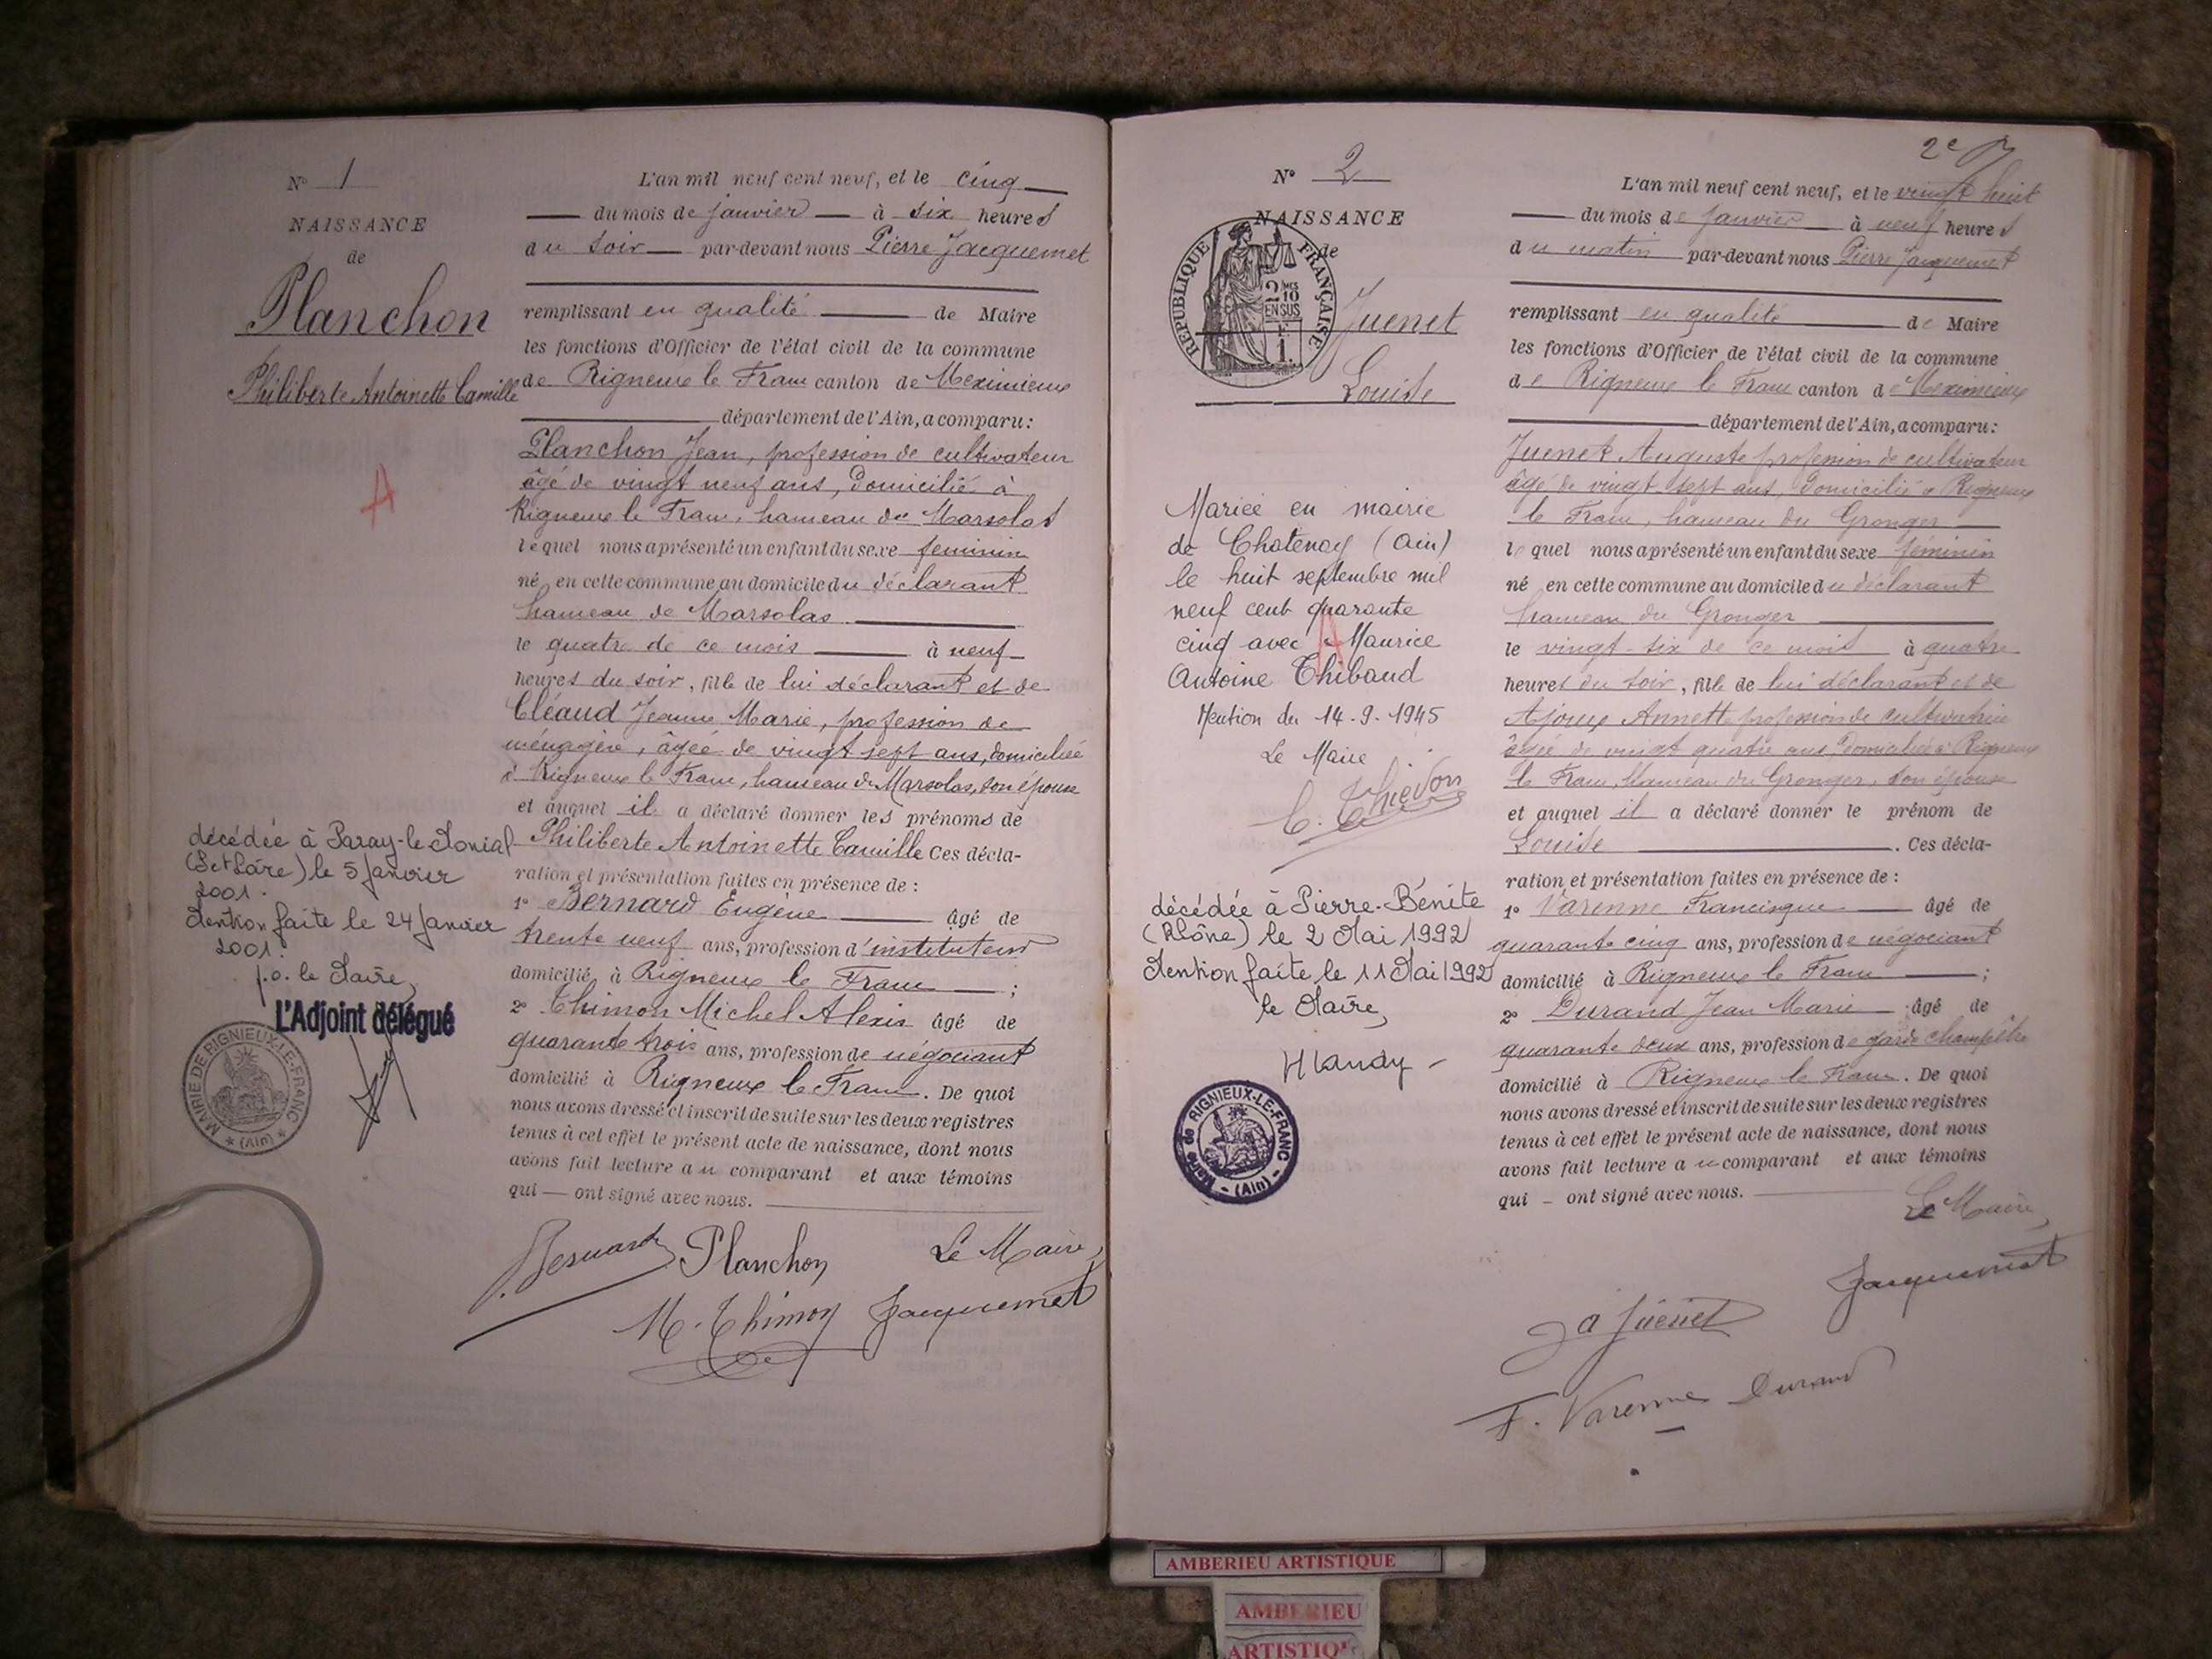 N° 1
NAISSANCE
de
Planchon
Philiberte Antoinette Camille
A
décédée à Paray-le-Monial
(S et Loire) le 5 Janvier
2001.
Mention faite le 24 Janvier
2001.
p.o. le Maire,
L'Adjoint délégué
MAIRIE DE RIGNIEUX-LE-FRANC
(Ain)
L'an mil neuf cent neuf, et le cinq
du mois de janvier à six heures
du soir par-devant nous Pierre Jacquemet
remplissant en qualité de Maire
les fonctions d'Officier de l'état civil de la commune
de Rigneux le Franc canton de Meximieux
département de l'Ain, a comparu:
Planchon Jean, profession de cultivateur
âgé de vingt neuf ans, domicilié à
Rigneux le Franc, hameau de Marsolas
lequel nous a présenté un enfant du sexe féminin
né, en cette commune au domicile du déclarant
hameau de Marsolas
le quatre de ce mois à neuf
heures du soir, fille de lui déclarant et de
Cléaud Jeanne Marie, profession de
ménagère, âgée de vingt sept ans, domiciliée
à Rigneux le Franc, hameau de Marsolas, son épouse
et auquel il a déclaré donner les prénoms de
Philiberte Antoinette Camille Ces décla-
ration et présentation faites en présence de :
1° Bernard Eugène âgé de
trente neuf ans, profession d'instituteur
domicilié à Rigneux le Franc ;
2° Thimon Michel Alexis âgé de
quarante trois ans, profession de négociant
domicilié à Rigneux le Franc. De quoi
nous avons dressé et inscrit de suite sur les deux registres
tenus à cet effet le présent acte de naissance, dont nous
avons fait lecture au comparant et aux témoins
qui — ont signé avec nous.
Bernard Planchon Le Maire,
M. Thimon Jacquemet
2e
N° 2
NAISSANCE
de
REPUBLIQUE FRANÇAISE
2/10 MES
EN SUS
1 F.
Juenet
Louise
Mariée en mairie
de Chatenay (Ain)
le huit septembre mil
neuf cent quarante
cinq avec Maurice
Antoine Thibaud
Mention du 14.9.1945
Le Maire
A
C. Thévon
décédée à Pierre-Bénite
(Rhône) le 2 Mai 1992
Mention faite le 11 Mai 1992
le Maire,
Mairie de RIGNIEUX-LE-FRANC
(Ain)
L'an mil neuf cent neuf, et le vingt huit
du mois de janvier à neuf heures
du matin par-devant nous Pierre Jacquemet
remplissant en qualité de Maire
les fonctions d'Officier de l'état civil de la commune
de Rigneux le Franc canton de Meximieux
département de l'Ain, a comparu:
Juenet Auguste profession de cultivateur
âgé de vingt-sept ans, domicilié à Rigneux
le Franc, hameau du Gronger
lequel nous a présenté un enfant du sexe féminin
né en cette commune au domicile du déclarant
hameau du Gronger
le vingt-six de ce mois à quatre
heures du soir, fille de lui déclarant et de
Ajoux Annette profession de cultivatrice
âgée de vingt quatre ans domiciliée à Rigneux
le Franc, hameau du Gronger, son épouse
et auquel il a déclaré donner le prénom de
Louise. Ces décla-
ration et présentation faites en présence de :
1° Varenne Francisque âgé de
quarante cinq ans, profession de négociant
domicilié à Rigneux le Franc ;
2° Durand Jean Marie âgé de
quarante deux ans, profession de garde champêtre
domicilié à Rigneux le Franc. De quoi
nous avons dressé et inscrit de suite sur les deux registres
tenus à cet effet le présent acte de naissance, dont nous
avons fait lecture au comparant et aux témoins
qui – ont signé avec nous.
Le Maire,
Jacquemet
a Juenet
F. Varenne Durand
AMBERIEU ARTISTIQUE
AMBERIEU
ARTISTIQU